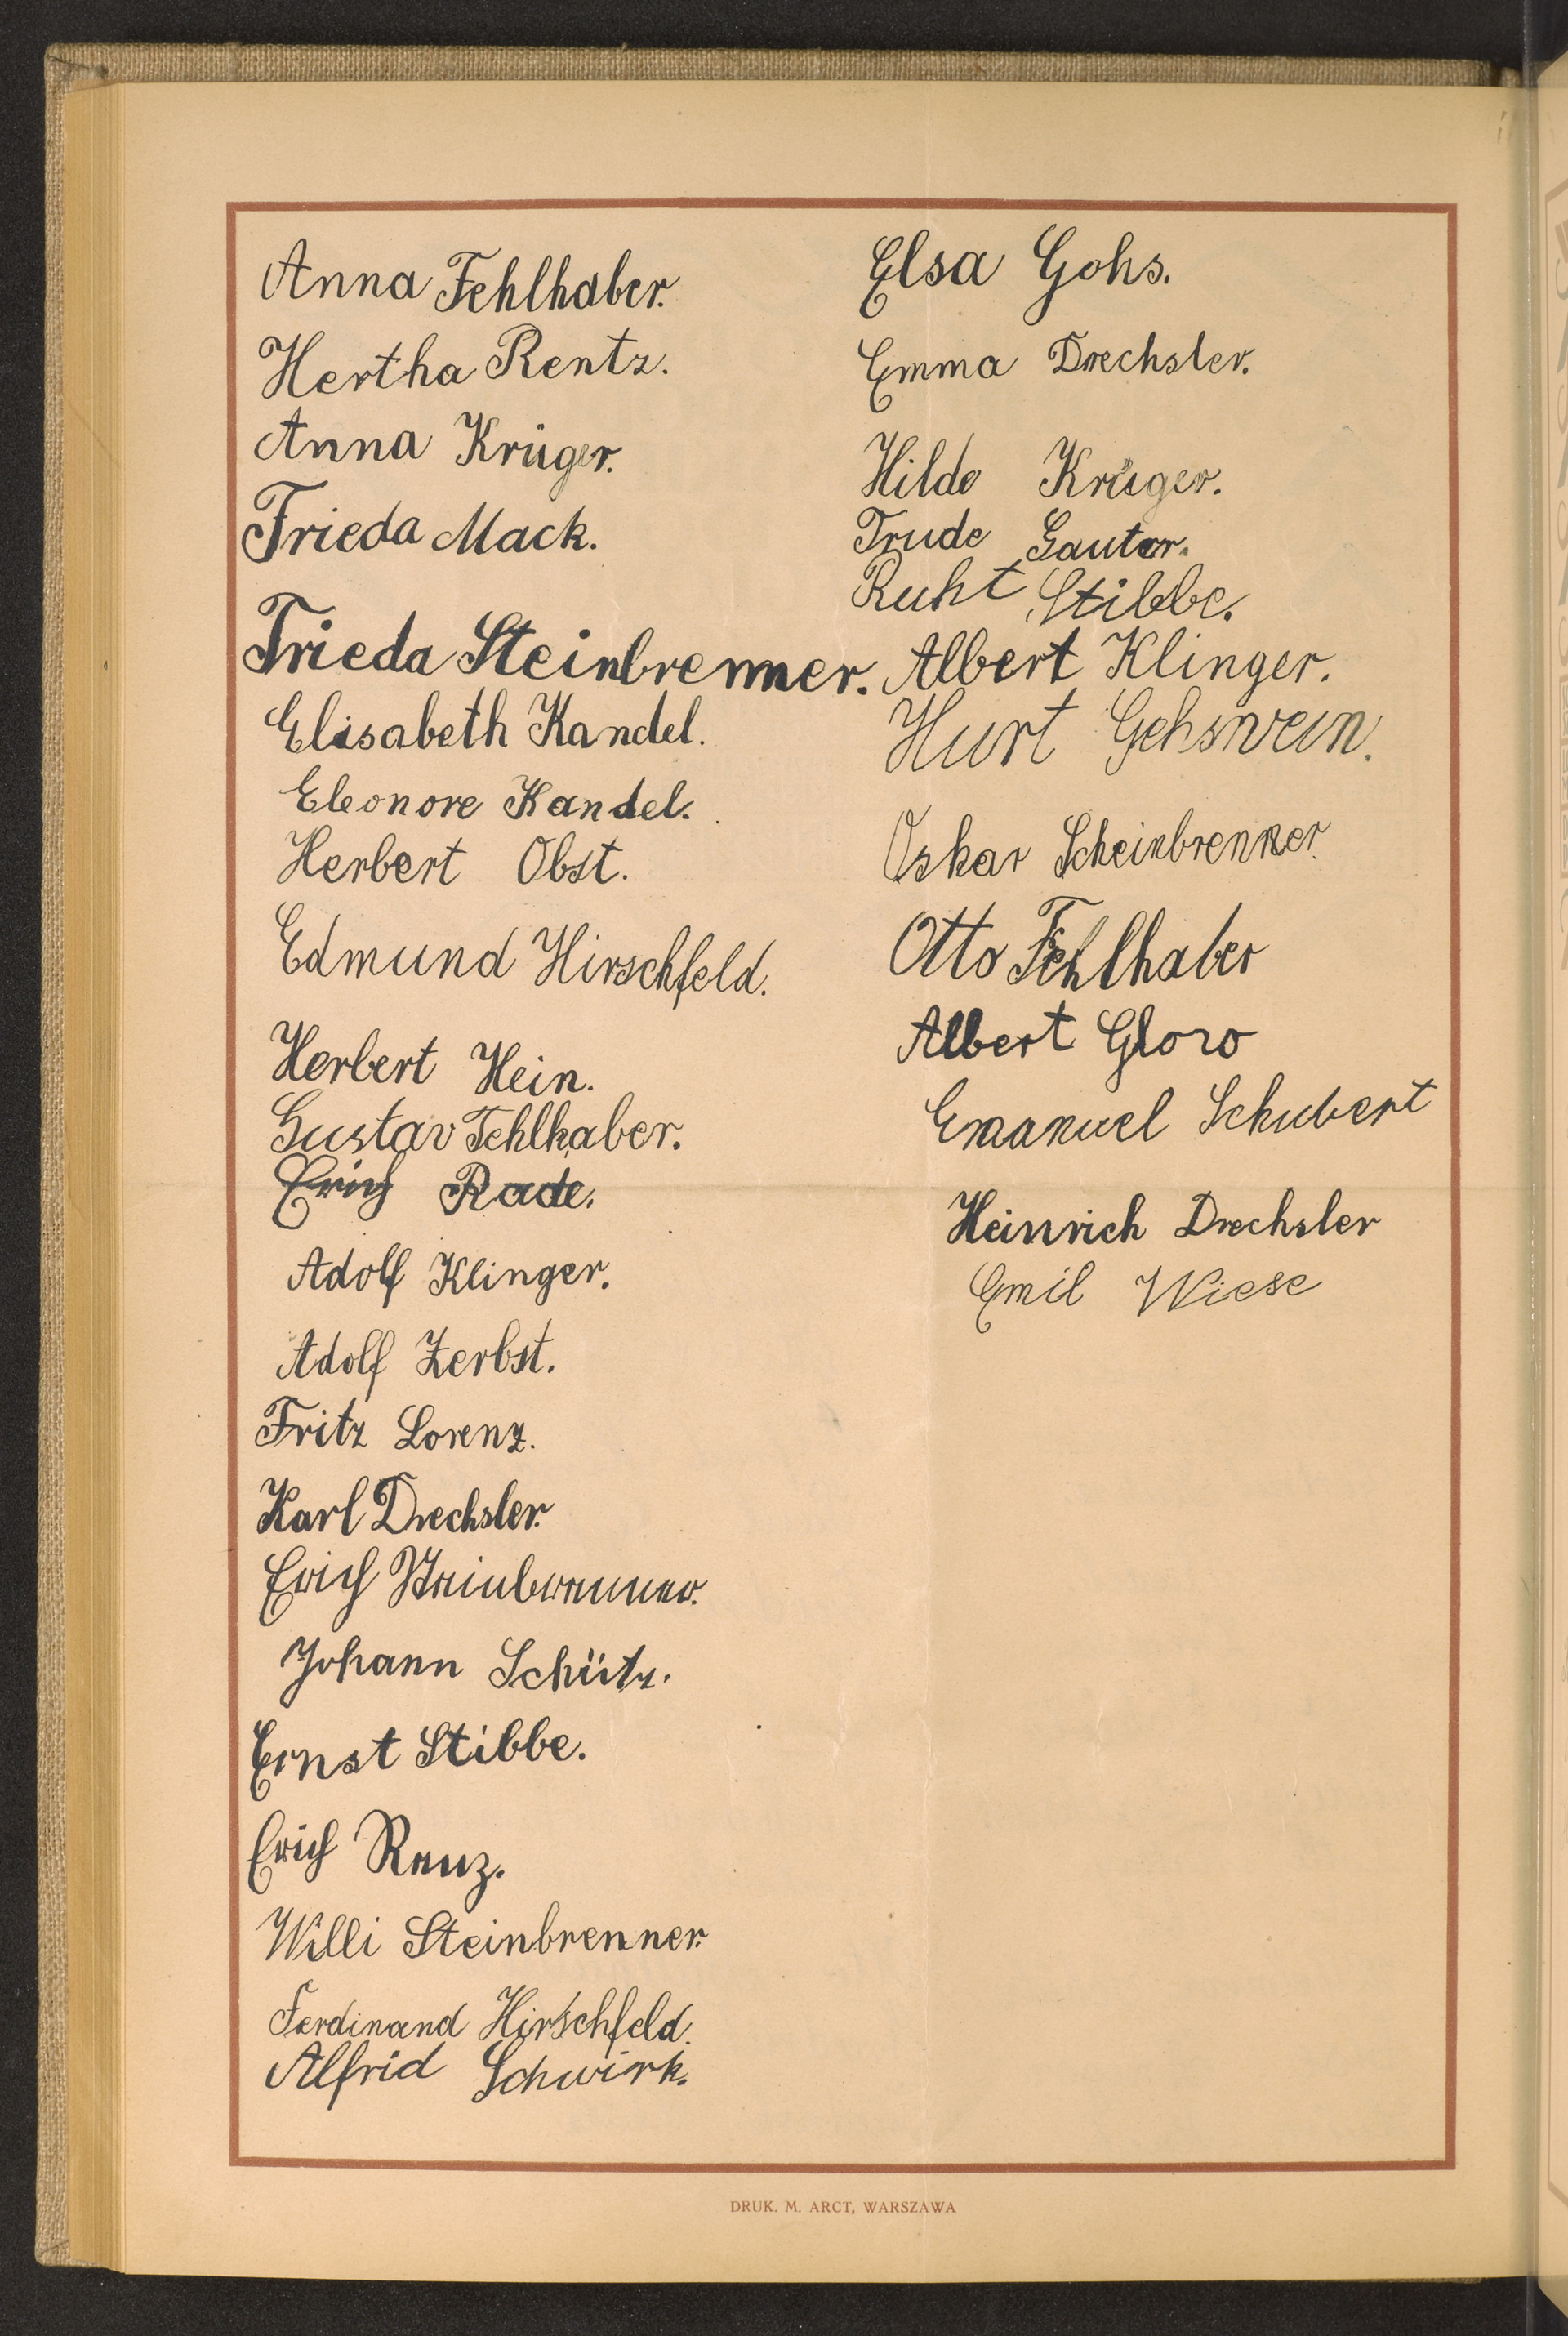 Anna Fehlhaber.
Hertha Rentz.
Anna Krüger.
Frieda Mack.
Frieda Steinbrenner.
Elisabeth Kandel.
Eleonore Kandel.
Herbert Obst.
Edmund Hirschfeld.
Herbert Hein.
Gustav Fehlhaber.
Erich Rade.
Adolf Klinger.
Adolf Zerbst.
Fritz Lorenz.
Karl Drechsler.
Erich Steinbrenner.
Johann Schütz.
Ernst Stibbe.
Erich Renz.
Willi Steinbrenner.
Ferdinand Hirschfeld.
Alfrid Schwirk.
Elsa Gohs.
Emma Drechsler.
Hilde Krüger.
Trude Gauter.
Ruht Stibbe.
Albert Klinger.
Kurt Gehswein.
Oskar Scheinbrenner.
Otto Fehlhaber
Albert
Emanuel Schubert
Heinrich Drechsler
Emil Wiese
DRUK. M. ARCT, WARSZAWA